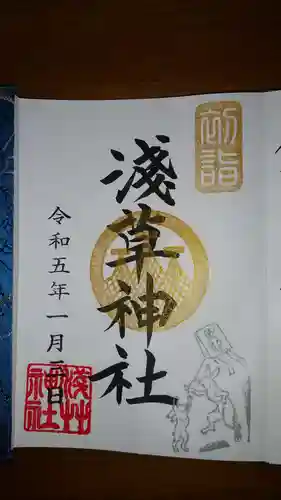 初詣
淺草神社
令和五年一月三日
淺草神社